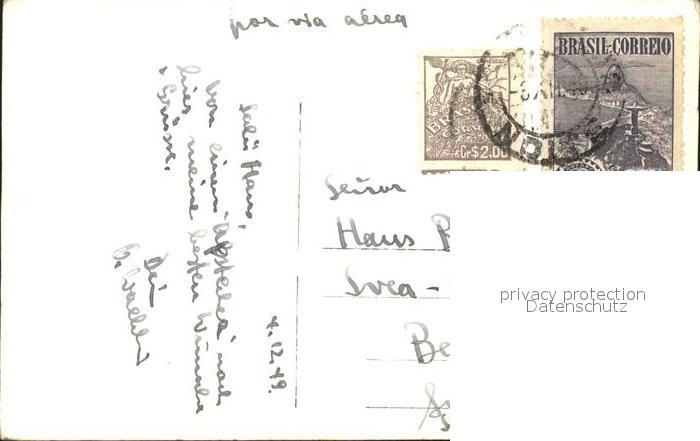 por via aérea
BRASIL-CORREIO
Cr$2,00
Salü Hans,
von einem "Abstecher" nach
hier meine besten Wünsche
+ Grüsse.
Dein
4.12.49.
Señor
Hans
Svea-
Be
privacy protection
Datenschutz